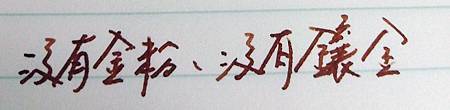 沒有金粉、沒有鑲金